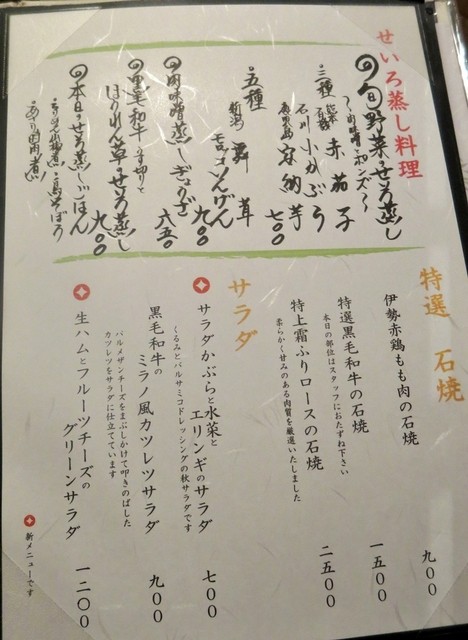 せいろ蒸し料理
旬野菜のせいろ蒸し
〜肉味噌・ポンズ〜
三種
熊本
赤茄子
石川 小かぶら
鹿児島 安納芋
七〇〇
五種
新潟 舞茸
モロッコいんげん
九〇〇
肉味噌蒸しぎょうざ
六五〇
黒毛和牛
ほうれん草のせいろ蒸し
九〇〇
本日のせいろ蒸しごはん
特選 石焼
伊勢赤鶏もも肉の石焼
九〇〇
特選黒毛和牛の石焼
本日の部位はスタッフにおたずね下さい
一五〇〇
特上霜ふりロースの石焼
柔らかく甘みのある肉質を厳選いたしました
二五〇〇
サラダ
サラダかぶらと水菜と
エリンギのサラダ
くるみとバルサミコドレッシングの秋サラダです
七〇〇
黒毛和牛の
ミラノ風カツレツサラダ
パルメザンチーズをまぶしかけて叩きのばした
カツレツをサラダに仕立てています
九〇〇
生ハムとフルーツチーズの
グリーンサラダ
一二〇〇
新メニューです